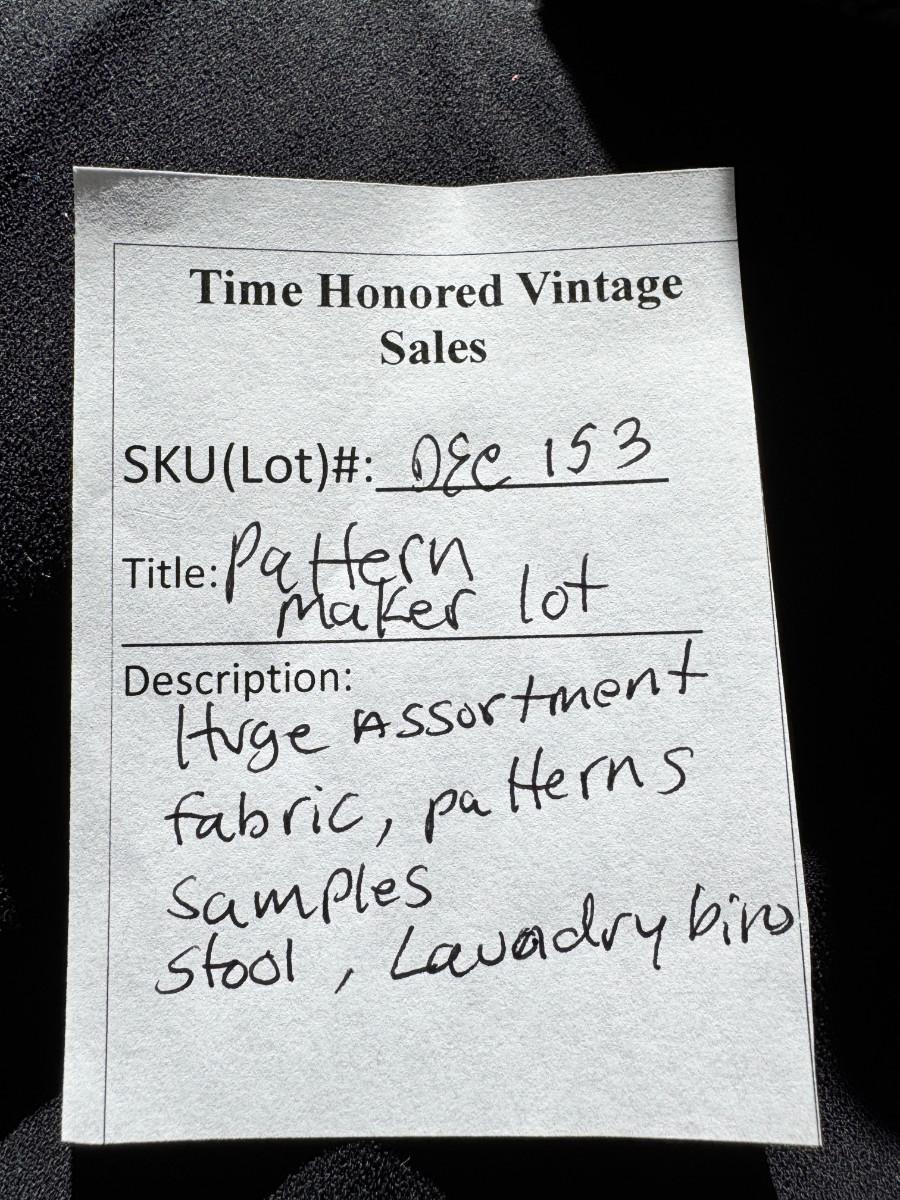 Time Honored Vintage
Sales
SKU(Lot)#: DEC 153
Title: Pattern
maker lot
Description:
Huge Assortment
fabric, patterns
samples
stool, Lauadry